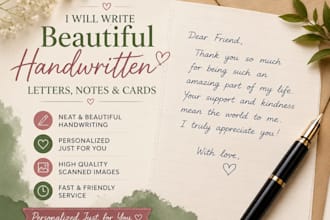 I WILL WRITE
Beautiful
Handwritten
LETTERS, NOTES & CARDS
NEAT & BEAUTIFUL
HANDWRITING
PERSONALIZED
JUST FOR YOU
HIGH QUALITY
SCANNED IMAGES
FAST & FRIENDLY
SERVICE
Personalized Just for You
Dear Friend,
Thank you so much
for being such an
amazing part of my life.
Your support and kindness
mean the world to me.
I truly appreciate you!
With love,